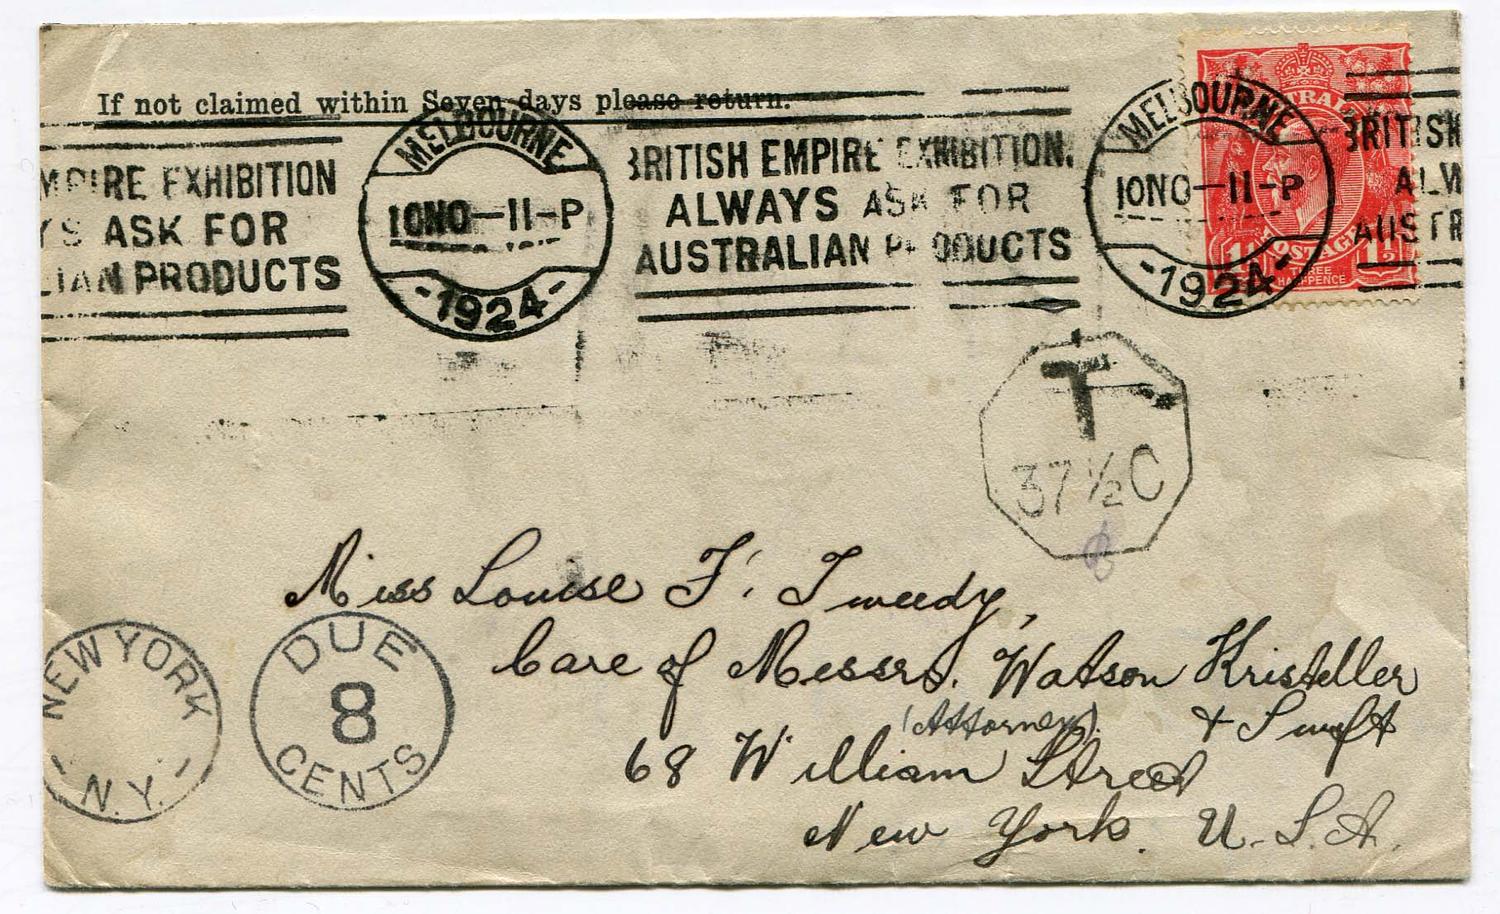 If not claimed within Seven days please return.
MPIRE EXHIBITION
YS ASK FOR
LIAN PRODUCTS
MELBOURNE
10NO—11-P
-1924-
BRITISH EMPIRE EXHIBITION.
ALWAYS ASK FOR
AUSTRALIAN PRODUCTS
MELBOURNE
10NO—11-P
-1924-
BRITISH
ALW
AUSTR
POSTAGE
1½
THREE
HALFPENCE
T
37½C
Miss Louise F. Tweedy,
Care of Messrs. Watson Kristeller
(Attorneys) & Swift
68 William Street
New York. U.S.A.
NEW YORK
- N.Y. -
DUE
8
CENTS